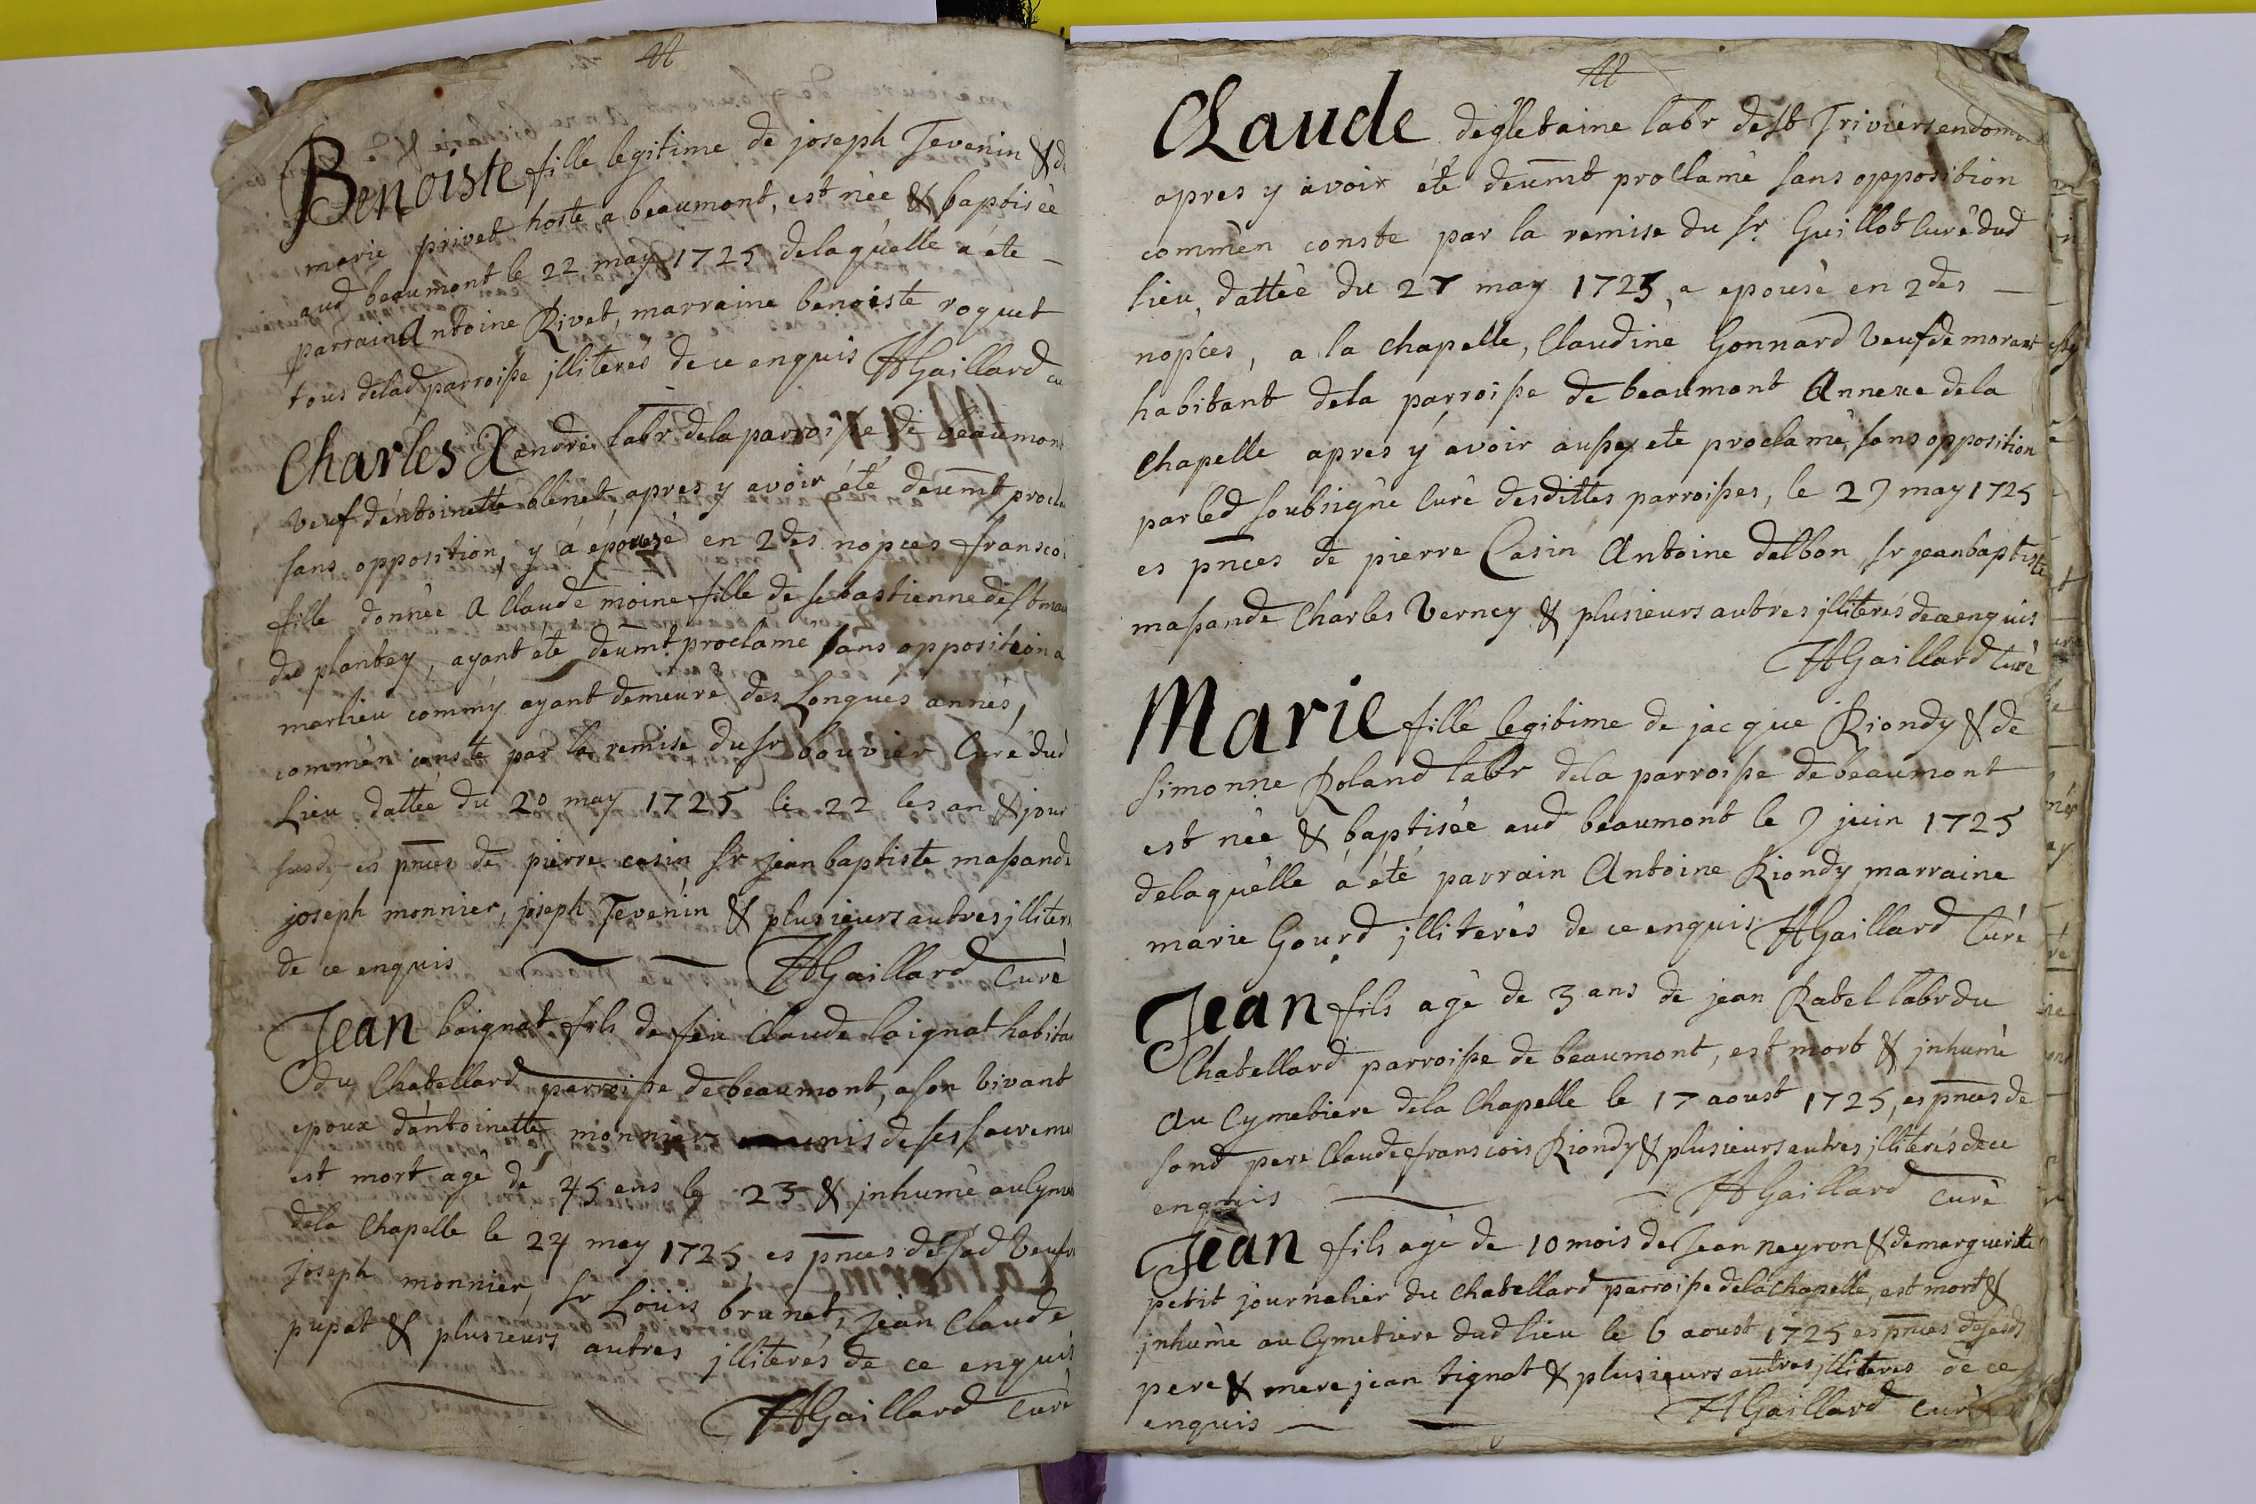 Benoiste fille legitime de joseph Tevenin & de
marie privet hoste a beaumont, est née & baptisée
aud beaumont le 22 may 1725 delaquelle a été
parrain Antoine Rivet, marraine benoiste roquet
tous delad parroisse jlliterés de ce enquis Gaillard cu
Charles Xandre labr dela parroisse de beaumon
veuf d'entoinette blenet, apres y avoir été deumt procla
sans opposition, y a épousé en 2des nopces fransco
fille donnée a Claude moine fille de sebastienne de st mau
du plantey, ayant été deumt proclame sans opposition a
marlieu comm'y ayant demeuré des Longues annés,
comm'en conste par la remise du sr bouvier Curé dud
Lieu dattée du 20 may 1725 le 22 les an & jour
susd es pnces de pierre casin sr jean baptiste massande
joseph monnier, joseph Tevenin & plusieurs autres jlliter
de ce enquis Gaillard Curé
Jean loignat fils de feu Claude loignat habita
du Chatellard parroisse de beaumont, a son vivant
epoux d'antoinette monnier munis de ses sacreme
est mort agé de 45 ans le 23 & jnhumé au Cyme
dela Chapelle le 24 may 1725 es pnces de sad veufve
joseph monnier, sr Loüis brunet, jean Claude
pupat & plusieurs autres jlliterés de ce enquis
Gaillard Curé
CLaude degletaine labr de st Triviers en dom
apres y avoir été deumt proclamé sans opposition
comm'en conste par la remise du sr Guillot Curé dud
lieu, dattée du 27 may 1725, a epousé en 2des
nopces, a la chapelle, Claudine Gonnard veuf de morant
habitant dela parroisse de beaumont Annexe dela
Chapelle apres y avoir aussy eté proclamé, sans opposition
par led soubsigné Curé desdittes parroisses, le 29 may 1725
es pnces de pierre Casin Antoine dalbon, sr jean baptiste
massande Charles Verney & plusieurs autres jlliterés de ce enquis
Gaillard Curé
Marie fille legitime de jacque Riondy & de
simonne Roland labr dela parroisse de beaumont
est née & baptisée aud beaumont le 9 juin 1725
delaquelle a été parrain Antoine Riondy marraine
marie Gourd jlliterés de ce enquis Gaillard Curé
Jean fils agé de 3 ans de jean Ratel labr du
Chatellard parroisse de beaumont, est mort & jnhumé
Au Cymetiere dela Chapelle le 17 aoust 1725, es pnces de
sond pere Claude fransçois Riondy & plusieurs autres jlliterés de ce
enquis Gaillard Curé
Jean fils agé de 10 mois de Jean neyron & de marguerite
petit journalier du Chatellard parroisse dela Chapelle, est mort &
jnhumé au Cymetiere dud lieu le 6 aoust 1725 es pnces de sesds
pere & mere jean tignat & plusieurs autres jlliterés de ce
enquis Gaillard Curé